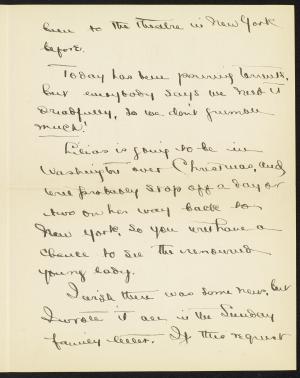 been to the theatre in New York
before.
Today has been pouring torrents,
but everybody says we need it
dreadfully, so we don't grumble
much!
Lilias is going to be in
Washington over Christmas, and
will probably stop off a day or
two on her way back to
New York, so you will have a
chance to see the renowned
young lady.
I wish there was some news, but
I wrote it all in the Sunday
family letter. If this request